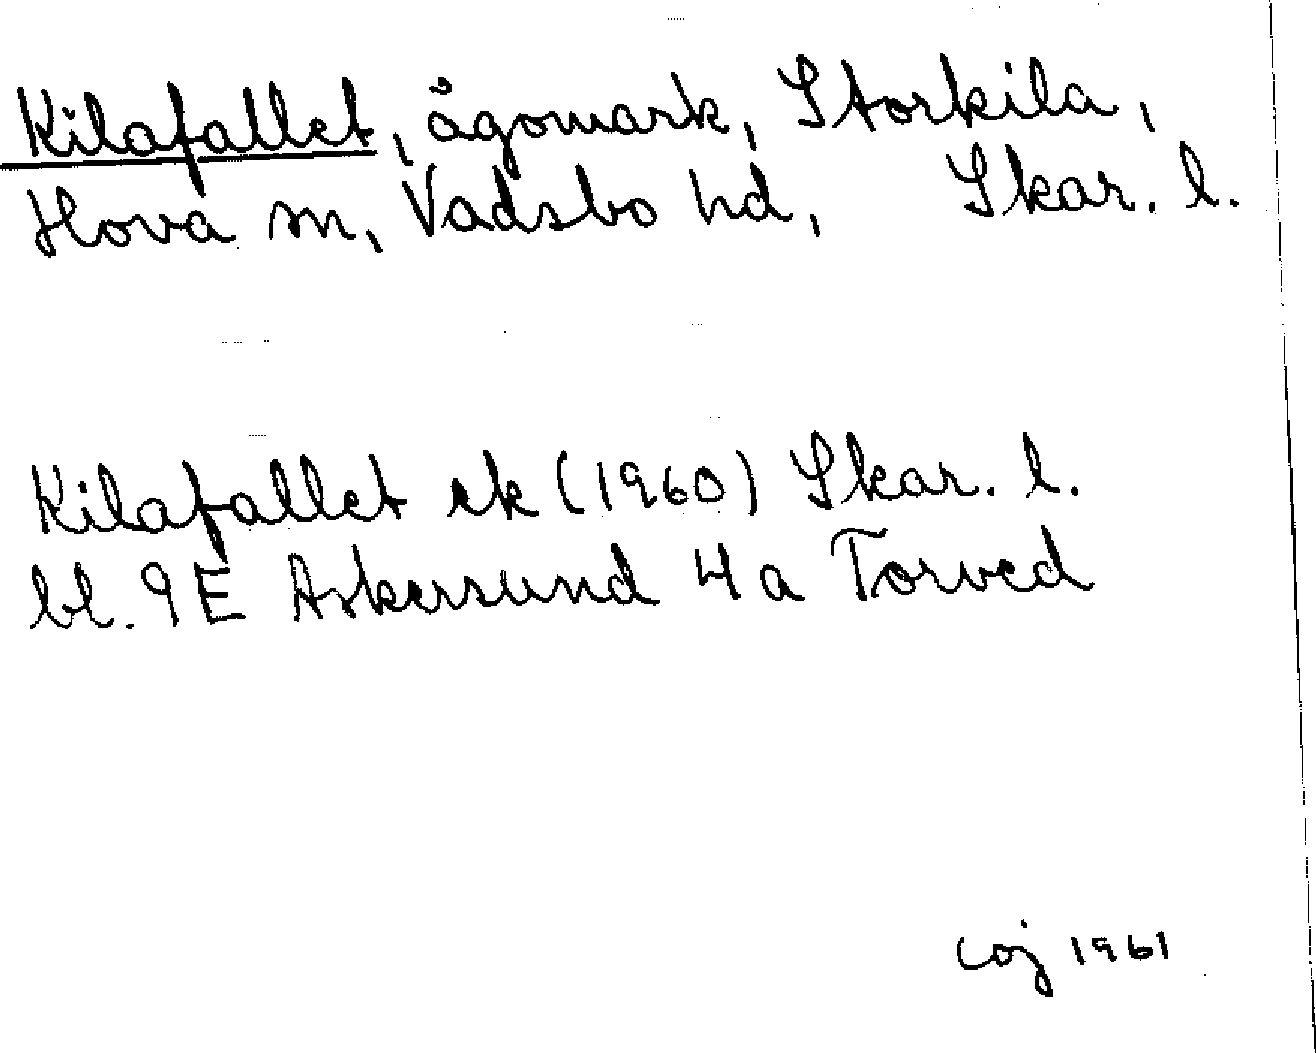 Kilafallet, ägomark, Storkila,
Hova sn, Vadsbo hd, Skar. l.
Kilafallet ek (1960) Skar. l.
bl. 9E Askersund 4a Torved
1961